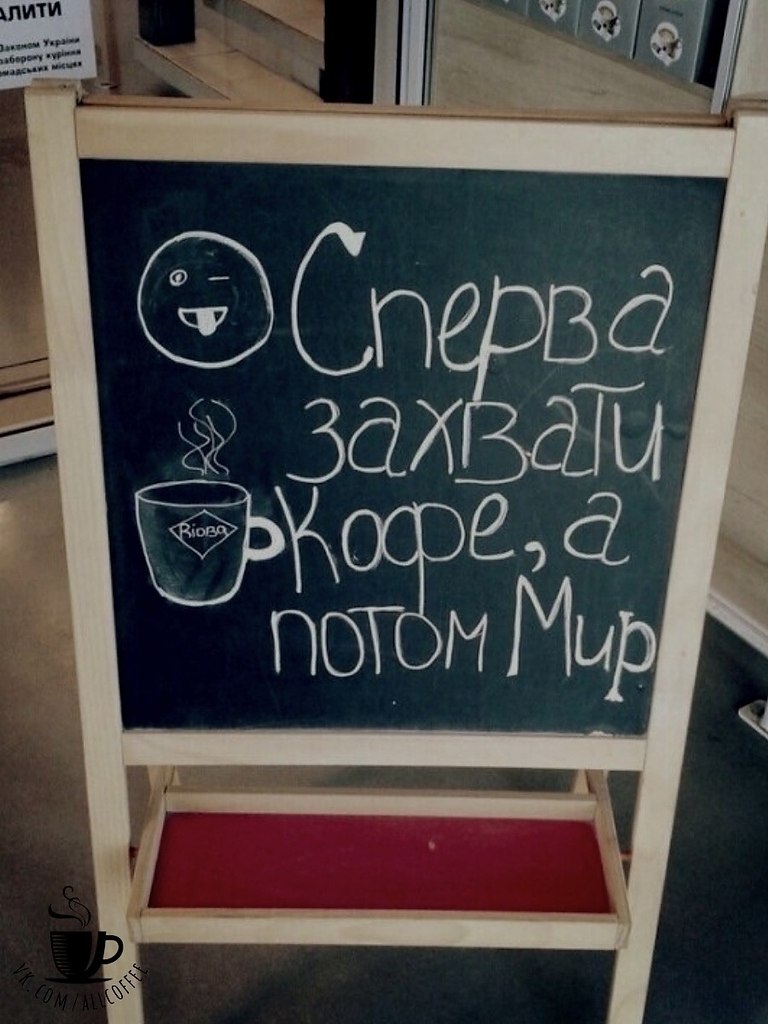 АЛИТИ
Законом України
заборону куріння
омадських місцях
Сперва
захвати
Кофе, а
потом Мир
Rioba
VK.COM/ALLCOFFEE